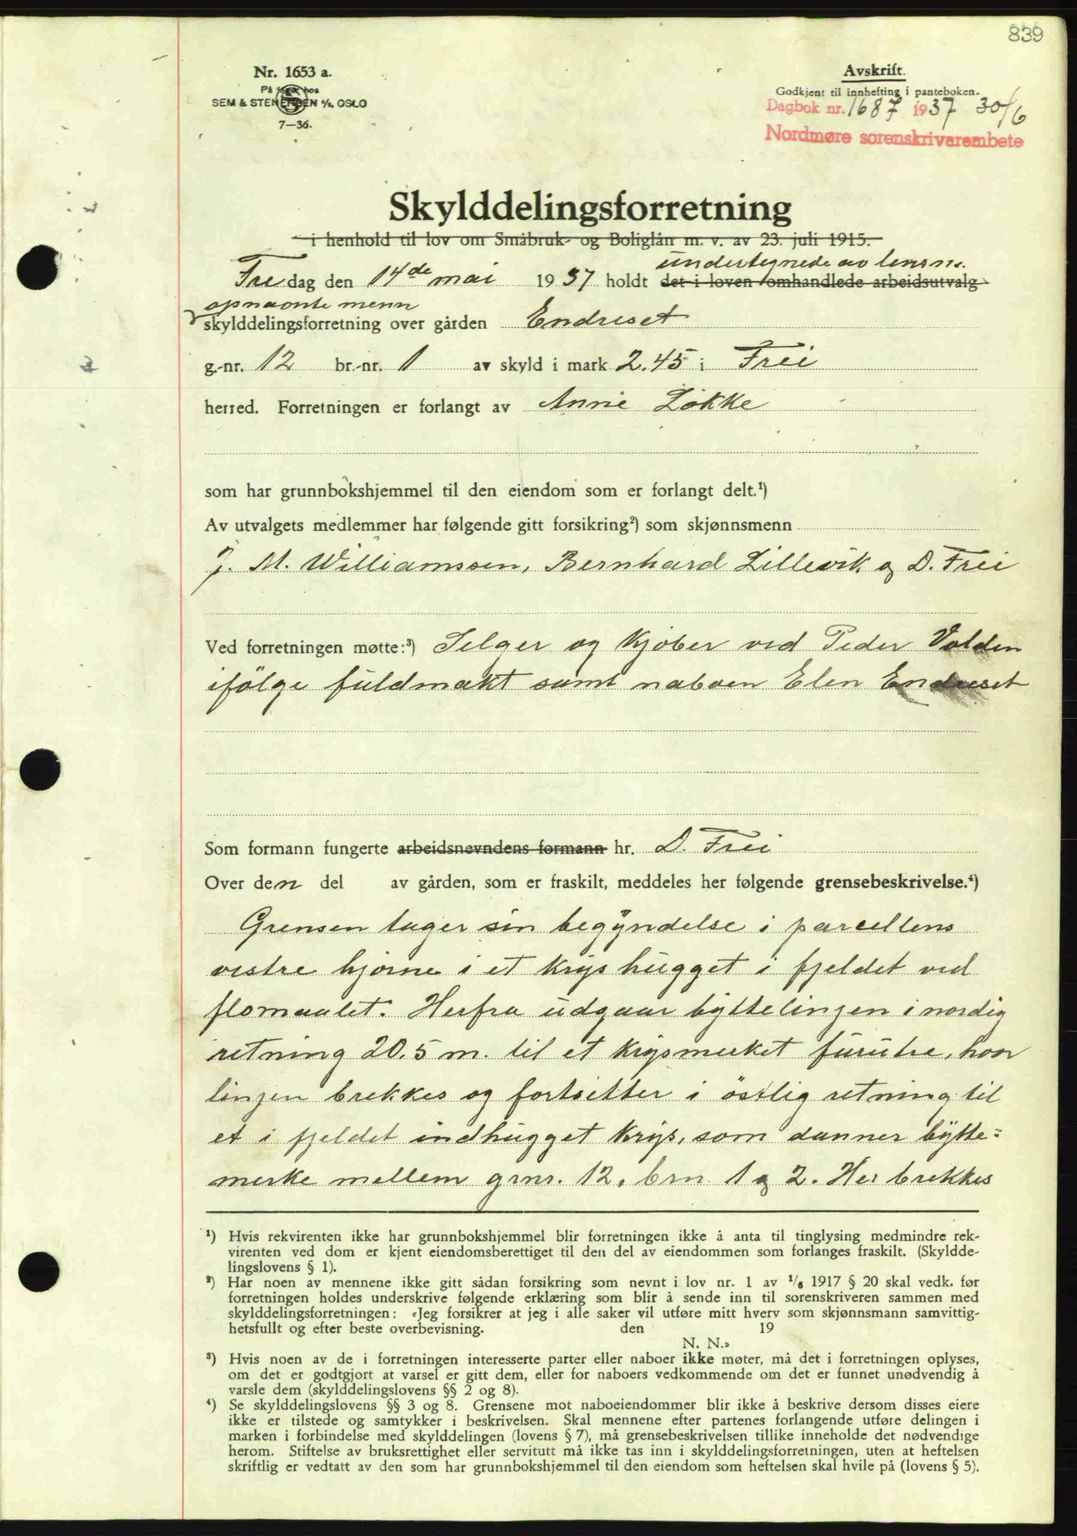 839
Nr. 1653 a.
På lager hos
SEM & STENERSEN A/S, OSLO
7—36.
Avskrift.
Godkjent til innhefting i panteboken.
Dagbok nr. 1687 1937 30/6
Nordmøre sorenskrivarembete
Skylddelingsforretning
i henhold til lov om Småbruk- og Boliglån m. v. av 23. juli 1915.
undertegnede av lensm.
Fredag den 14de mai 1937 holdt det i loven omhandlede arbeidsutvalg
opnævnte menn
skylddelingsforretning over gården Endreset
g.-nr. 12 br.-nr. 1 av skyld i mark 2.45 i Frei
herred. Forretningen er forlangt av Anne Løkke
som har grunnbokshjemmel til den eiendom som er forlangt delt.¹)
Av utvalgets medlemmer har følgende gitt forsikring²) som skjønnsmenn
J. M. Williamssen, Bernhard Lillevik og D. Frei
Ved forretningen møtte:³) Selger og kjøber ved Peder Volden
ifølge fuldmakt samt naboen Elen Endreset
Som formann fungerte arbeidsnevndens formann hr. D. Frei
Over den del av gården, som er fraskilt, meddeles her følgende grensebeskrivelse.⁴)
Grensen tager sin begyndelse i parcellens
vestre hjørne i et krys hugget i fjeldet ved
flomaalet. Herfra udgaar byttelinjen i nordig
retning 20.5 m. til et krysmerket furutre, hvor
linjen brekkes og fortsetter i östlig retning til
et i fjeldet indhugget krys, som danner bytte=
merke mellem grnr. 12, brn. 1 og 2. Her brekkes
¹) Hvis rekvirenten ikke har grunnbokshjemmel blir forretningen ikke å anta til tinglysing medmindre rek-
virenten ved dom er kjent eiendomsberettiget til den del av eiendommen som forlanges fraskilt. (Skyldde-
lingslovens § 1).
²) Har noen av mennene ikke gitt sådan forsikring som nevnt i lov nr. 1 av ¹/₆ 1917 § 20 skal vedk. før
forretningen holdes underskrive følgende erklæring som blir å sende inn til sorenskriveren sammen med
skylddelingsforretningen: «Jeg forsikrer at jeg i alle saker vil utføre mitt hverv som skjønnsmann samvittig-
hetsfullt og efter beste overbevisning. den 19
N. N.»
³) Hvis noen av de i forretningen interesserte parter eller naboer ikke møter, må det i forretningen oplyses,
om det er godtgjort at varsel er gitt dem, eller for naboers vedkommende om det er funnet unødvendig å
varsle dem (skylddelingslovens §§ 2 og 8).
⁴) Se skylddelingslovens §§ 3 og 8. Grensene mot naboeiendommer blir ikke å beskrive dersom disses eiere
ikke er tilstede og samtykker i beskrivelsen. Skal mennene efter partenes forlangende utføre delingen i
marken i forbindelse med skylddelingen (lovens § 7), må grensebeskrivelsen tillike inneholde det nødvendige
herom. Stiftelse av bruksrettighet eller servitutt må ikke tas inn i skylddelingsforretningen, uten at heftelsen
skriftlig er vedtatt av den som har grunnbokshjemmel til den eiendom som heftelsen skal hvile på (lovens § 5).